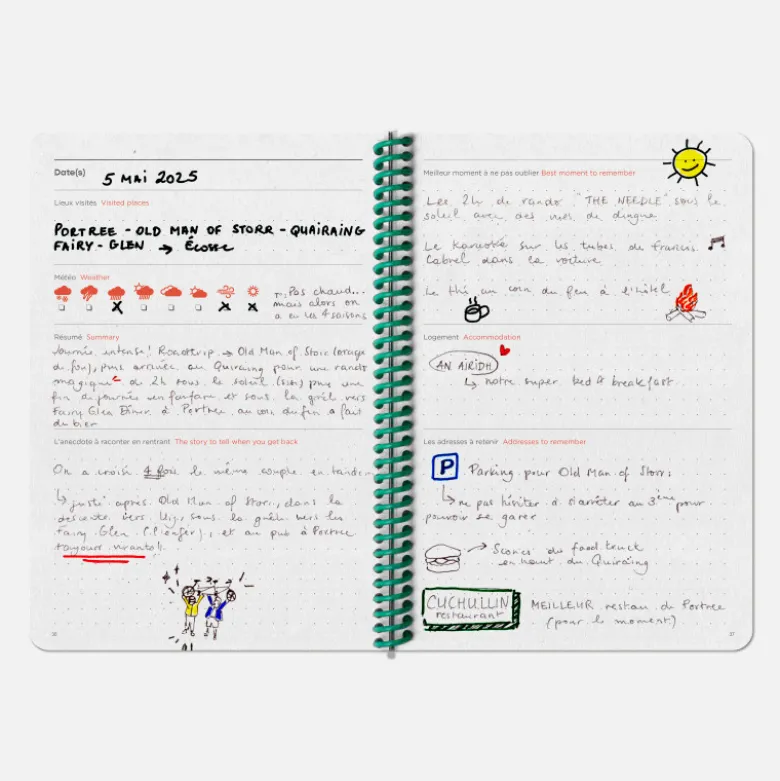 Date(s) 5 MAI 2025
Lieux visités Visited places
PORTREE - OLD MAN OF STORR - QUAIRAING
FAIRY - GLEN → Écosse
Météo Weather
Pas chaud...
mais alors on
a eu les 4 saisons
Résumé Summary
Journée intense! Roadtrip → Old Man of Storr (orage
de fou), puis arrivée au Quiraing pour une rando
magique de 2h sous le soleil (si si) puis une
fin de journée en fanfare et sous la grêle vers
Fairy Glen Dîner à Portree au coin du feu a fait
du bien
L'anecdote à raconter en rentrant The story to tell when you get back
On a croisé 4 fois le même couple en tandem
↳ juste après Old Man of Storr, dans la
descente vers Uig, sous la grêle vers les
Fairy Glen (l'enfer), et au pub à Portree
toujours vivants!
36
Meilleur moment à ne pas oublier Best moment to remember
Les 2h de rando "THE NEEDLE" sous le
soleil avec des vues de dingue
Le karaoké sur les tubes de Francis
Cabrel dans la voiture
Le thé au coin du feu à l'hôtel
Logement Accommodation
AN AIRIDH
↳ notre super bed & breakfast
Les adresses à retenir Addresses to remember
P Parking pour Old Man of Storr:
↳ ne pas hésiter à s'arrêter au 3ème pour
pouvoir se garer
→ Scones du food truck
en haut du Quiraing
CUCHULLIN MEILLEUR restau de Portree
restaurant (pour le moment)
37